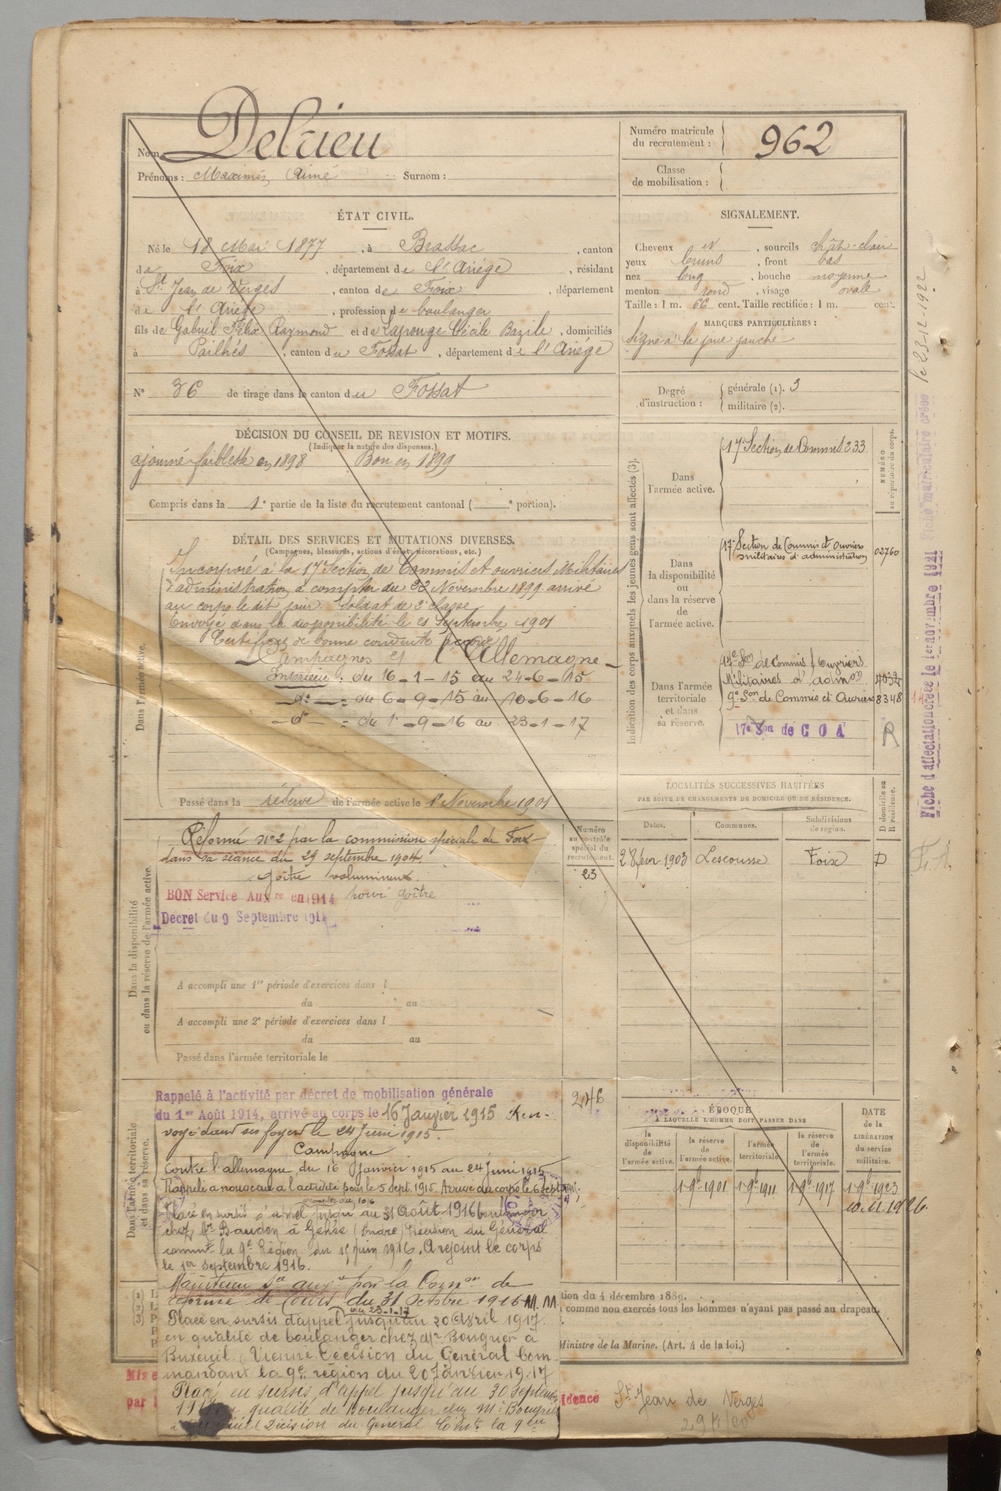 Nom Delrieu
Prénoms : Maximin Aimé Surnom :
Numéro matricule du recrutement : 962
Classe de mobilisation :
ÉTAT CIVIL.
Né le 18 Mai 1877, à Brassac, canton
de Foix, département de l'Ariège, résidant
à St Jean de Verges, canton de Foix, département
de l'Ariège, profession de boulanger
fils de Gabriel Félix Raymond et de Laponge Cécile Bazile, domiciliés
à Pailhés, canton du Fossat, département de l'Ariège
N° 36 de tirage dans le canton du Fossat
SIGNALEMENT.
Cheveux et, sourcils chât-clair
yeux bruns, front bas
nez long, bouche moyenne
menton rond, visage ovale
Taille : 1 m. 66 cent. Taille rectifiée : 1 m. cent.
MARQUES PARTICULIÈRES :
Signe à la joue gauche
Degré d'instruction : générale (1). 3
militaire (2).
DÉCISION DU CONSEIL DE REVISION ET MOTIFS.
(Indiquer la nature des dispenses.)
ajourné faiblesse en 1898 Bon en 1899
Compris dans la 1e partie de la liste du recrutement cantonal ( e portion).
DÉTAIL DES SERVICES ET MUTATIONS DIVERSES.
(Campagnes, blessures, actions d'éclat, décorations, etc.)
Dans l'armée active.
Incorporé à la 17e Section de Commis et ouvriers Militaires
d'administration à compter du 22 Novembre 1899 arrivé
au corps le dit jour. Soldat de 2e classe
Envoyé dans la disponibilité le 21 Septembre 1901
Certificat de bonne conduite accordé
Campagnes l'Allemagne
Intérieur : du 16-1-15 au 24-6-15
-d°- : du 6-9-15 au 10-6-16
-d°- : du 1er-9-16 au 23-1-17
Passé dans la réserve de l'armée active le 1er Novembre 1901
Dans la disponibilité ou dans la réserve de l'armée active.
Réformé n°2 par la commission spéciale de Foix
dans sa séance du 29 septembre 1904
goître volumineux
BON Service Auxre en 1914 pour goître
Décret du 9 Septembre 1914
A accompli une 1re période d'exercices dans l
du au
A accompli une 2e période d'exercices dans l
du au
Passé dans l'armée territoriale le
Numéro au contrôle spécial du recrutement.
23
246
Indication des corps auxquels les jeunes gens sont affectés (3).
NUMÉRO au répertoire du corps.
Dans l'armée active.
17e Section de Commis 233
Dans la disponibilité ou dans la réserve de l'armée active.
17e Section de Commis et Ouvriers
militaires d'administration 03760
Dans l'armée territoriale et dans sa réserve.
Militaires d'admon
9e Son de Commis et Ouvriers 8348
17e Son de C O A R
LOCALITÉS SUCCESSIVES HABITÉES
PAR SUITE DE CHANGEMENTS DE DOMICILE OU DE RÉSIDENCE.
Dates. Communes. Subdivisions de région. D domicile ou R résidence.
28 févr 1903 Lescousse Foix D
Fiche d'affectation créée le 1er novembre 1921
le 23-12-1922
Dans l'armée territoriale et dans sa réserve.
Rappelé à l'activité par décret de mobilisation générale
du 1er Août 1914, arrivé au corps le 16 Janvier 1915 Ren-
voyé dans ses foyers le 24 Juin 1915.
Campagne
Contre l'allemagne du 16 Janvier 1915 au 24 Juin 1915
Rappelé à nouveau à l'activité le 5 sept 1915 Arrivé au corps le 6 sept
Placé en sursis d'appel jusqu'au 31 août 1916 boulanger
chez Mr Baudon à Gehée (Indre) Décision du Général
commt la 9e Région du 1er juin 1916. A rejoint le corps
le 1er septembre 1916.
Maintenu Sce auxre par la Comon de
réforme de Tours du 31 Octobre 1916 M.M
au 23-1-17
Placé en sursis d'appel jusqu'au 30 Avril 1917
en qualité de boulanger chez Mr Bougrier à
Buxeuil, Vienne Décision du Général Com-
mandant la 9e région du 20 Janvier 1917
Placé en sursis d'appel jusqu'au 30 Septembre
1917 en qualité de Boulanger chez Mr Bougrier
à Buxeuil Décision du Général Comt la 9e
ÉPOQUE
A LAQUELLE L'HOMME DOIT PASSER DANS
la disponibilité de l'armée active. la réserve de l'armée active. l'armée territoriale. la réserve de l'armée territoriale.
DATE DE LA LIBÉRATION du service militaire.
1 9bre 1901 1 9bre 1911 1 9bre 1917 1 9bre 1923
10 bre 1926
tion du 4 décembre 1889.
comme non exercés tous les hommes n'ayant pas passé au drapeau.
Ministre de la Marine. (Art. 4 de la loi.)
Mis e
par l
idence St Jean de Verges